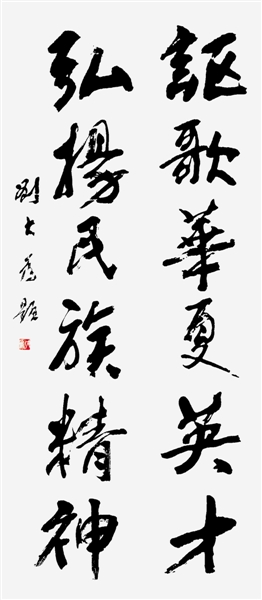 謳歌華夏英才
弘揚民族精神
劉大為題